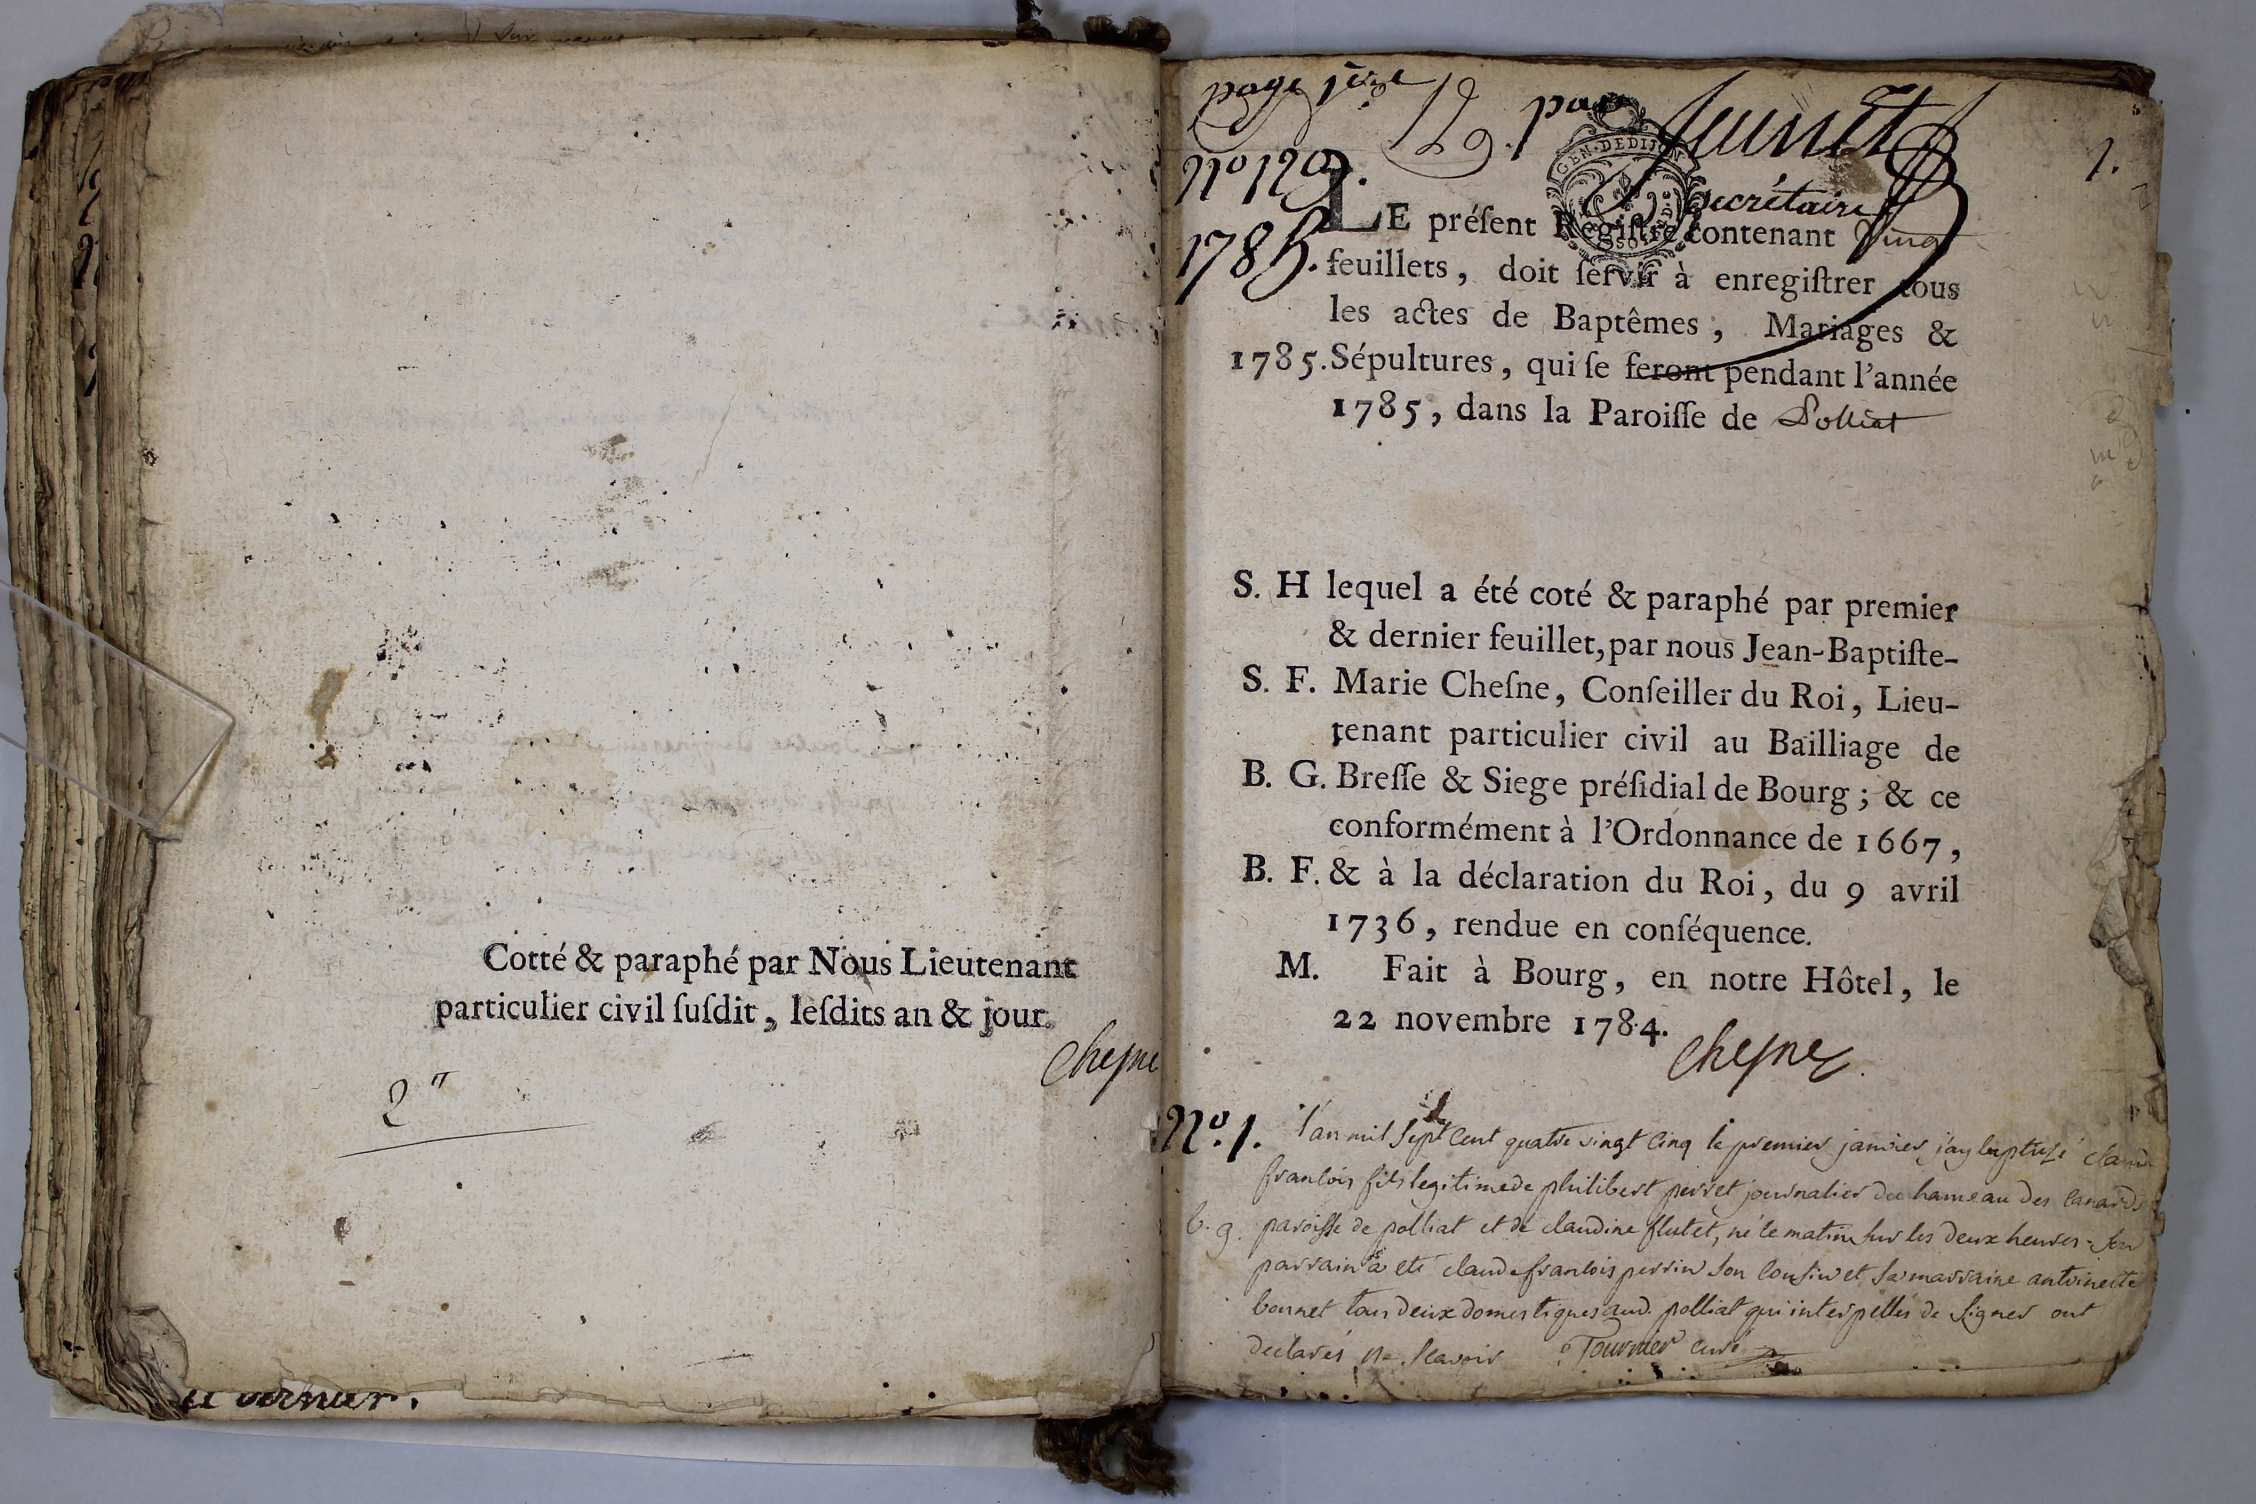 Cotté & paraphé par Nous Lieutenant
particulier civil ſuſdit, leſdits an & jour.
Cheſne
2"
dernier.
page 1ere par Jeunet
secrétaire
1.
GEN. DE DIJON
N° 120.
1785.
LE préſent Regiſtre contenant Vingt
feuillets, doit ſervir à enregiſtrer tous
les actes de Baptêmes, Mariages &
1785. Sépultures, qui ſe feront pendant l'année
1785, dans la Paroiſſe de Polliat
S. H lequel a été coté & paraphé par premier
& dernier feuillet, par nous Jean-Baptiſte-
S. F. Marie Cheſne, Conſeiller du Roi, Lieu-
tenant particulier civil au Bailliage de
B. G. Breſſe & Siege préſidial de Bourg; & ce
conformément à l'Ordonnance de 1667,
B. F. & à la déclaration du Roi, du 9 avril
1736, rendue en conſéquence.
M. Fait à Bourg, en notre Hôtel, le
22 novembre 1784.
Cheſne
N°. 1. l'an mil sept cent quatre vingt cinq le premier janvier j'ay baptizé claude
francois fils legitime de philibert perret journalier du hameau des canards
b. g. paroisse de polliat et de claudine flutet, né le matin sur les deux heures. son
parrain a été claude francois perrin son cousin et sa marraine antoinette
bonnet tous deux domestiques aud. polliat qui interpellés de signer ont
declarés ne scavoir Tournier curé